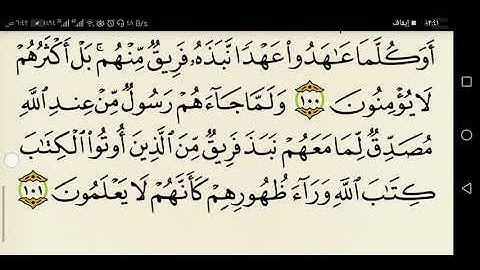 ١٢:٤١ ■ إيقاف
٤٨ B/s
٩٤٪ ٦:٤٢ ص
أَوَكُلَّمَا عَـٰهَدُوا۟ عَهْدًا نَّبَذَهُۥ فَرِيقٌ مِّنْهُم ۚ بَلْ أَكْثَرُهُمْ
لَا يُؤْمِنُونَ ١٠٠ وَلَمَّا جَآءَهُمْ رَسُولٌ مِّنْ عِندِ ٱللَّهِ
مُصَدِّقٌ لِّمَا مَعَهُمْ نَبَذَ فَرِيقٌ مِّنَ ٱلَّذِينَ أُوتُوا۟ ٱلْكِتَـٰبَ
كِتَـٰبَ ٱللَّهِ وَرَآءَ ظُهُورِهِمْ كَأَنَّهُمْ لَا يَعْلَمُونَ ١٠١